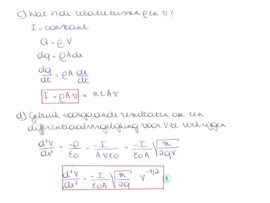 c) Wat is de relatie tussen ρ en v?
I = constant
Q = ρ·V
dq = ρAdx
dq/dt = ρA dx/dt
I = ρAv = ρcAv
d) Gebruik voorgaande resultaten om een
differentiaalvergelijking voor V te verkrijgen
d²V/dx² = -ρ/ε₀ = -I/Avε₀ = -I/ε₀A √m/2qV
d²V/dx² = -I/ε₀A √m/2q V^-1/2